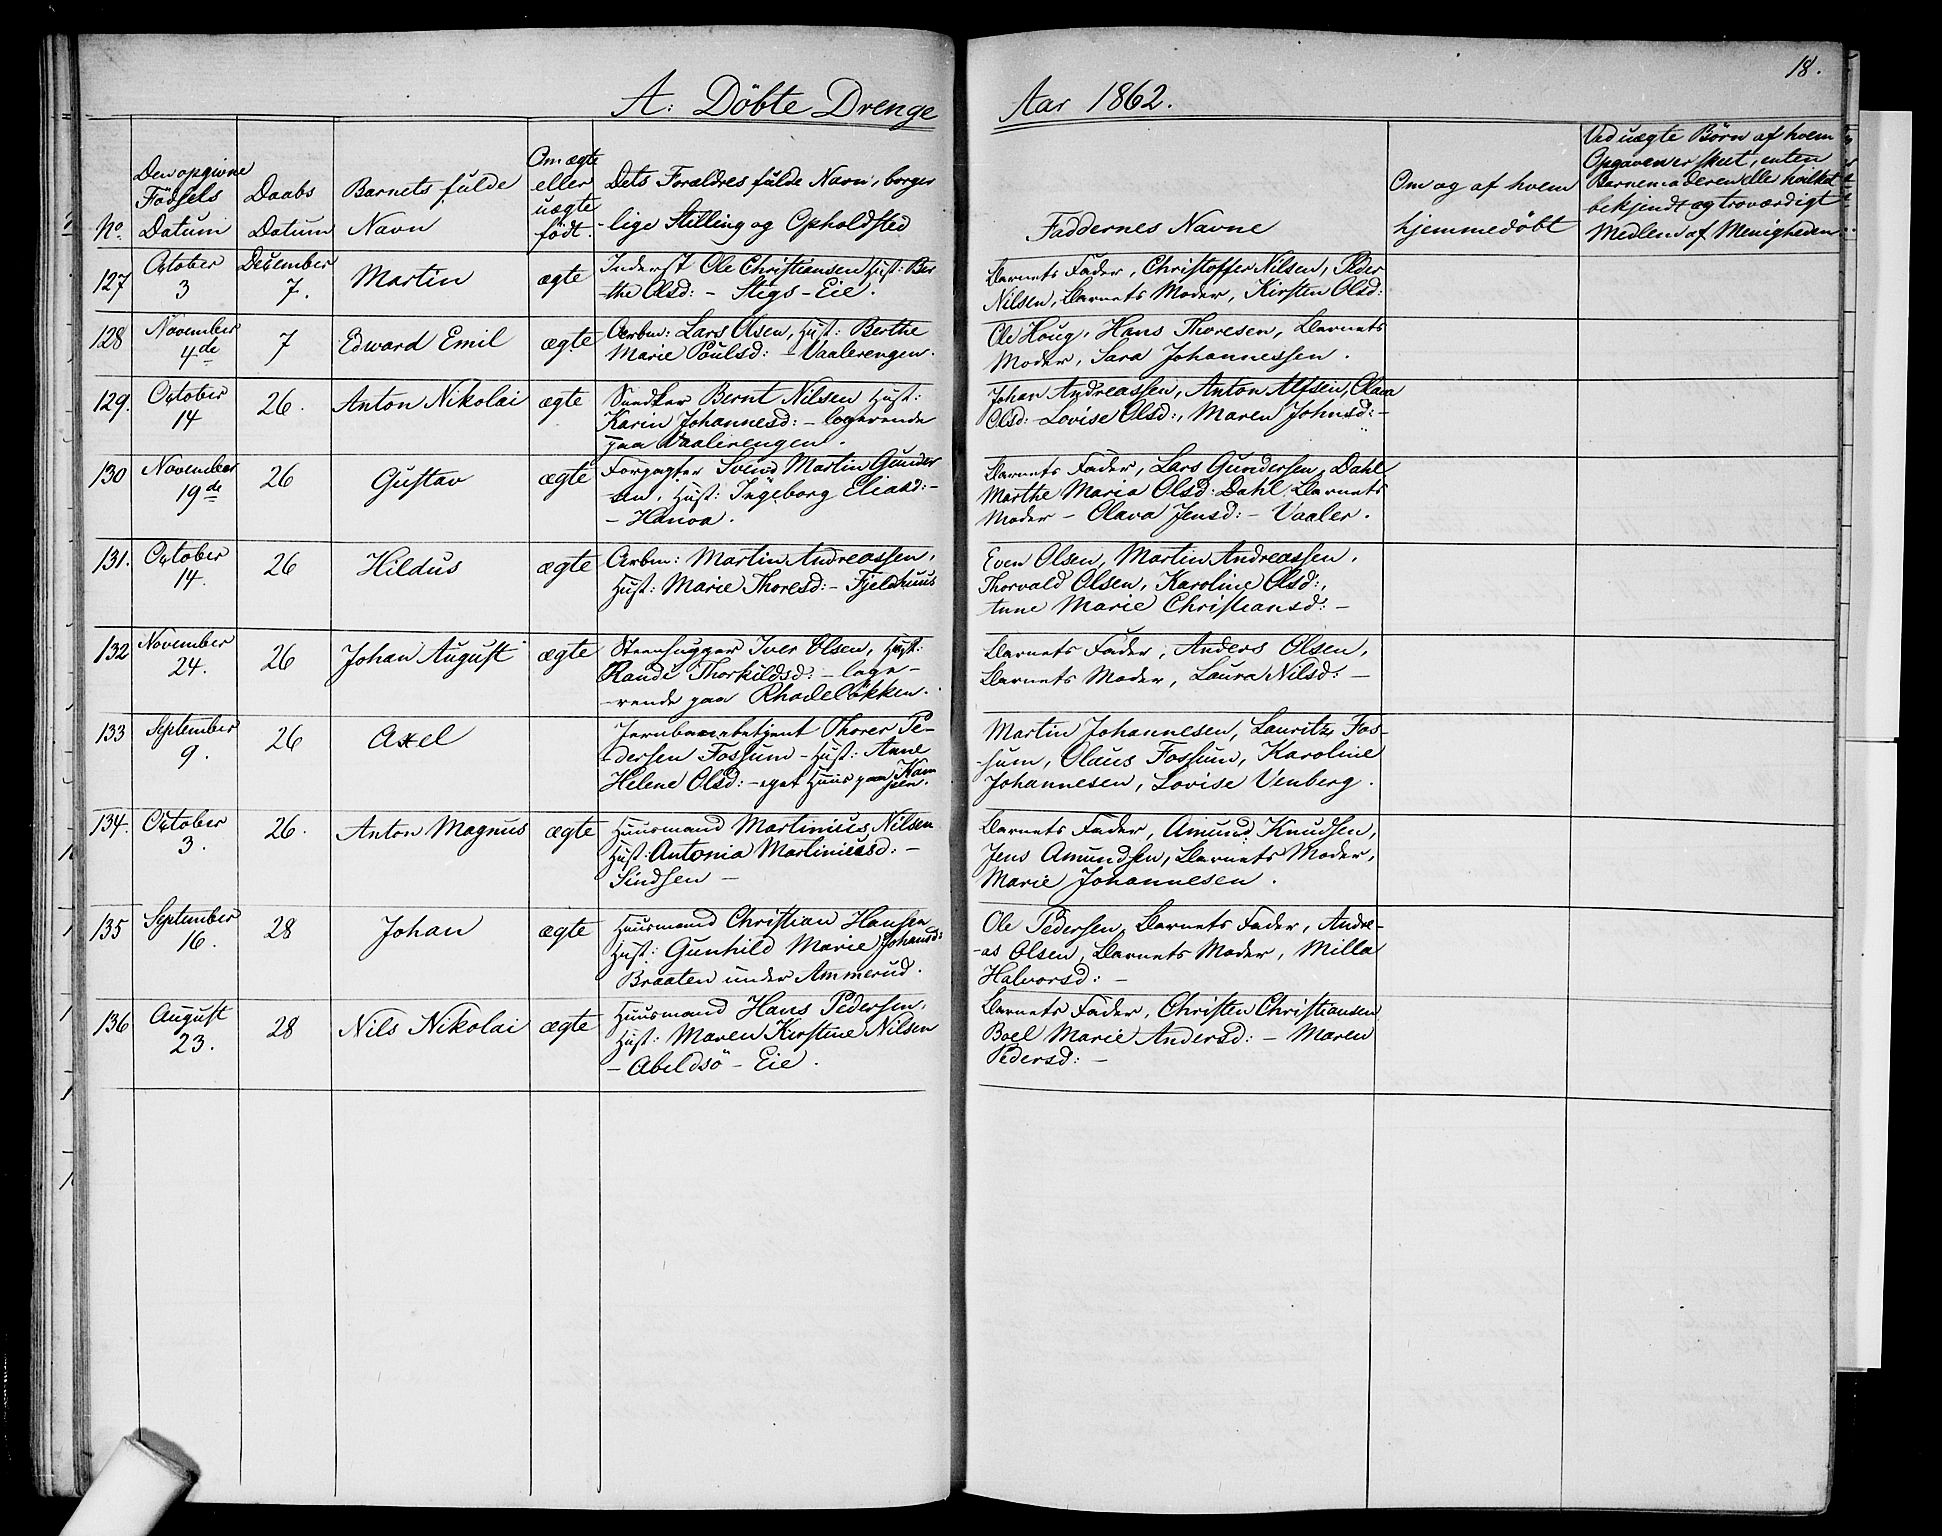 18.
A: Döbte Drenge Aar 1862.
No.
Den opgivne Födsels Datum
Daabs Datum
Barnets fulde Navn
Om ægte eller uægte födt.
Dets Forældres fulde Navn, borger
lige Stilling og Opholdsted
Faddernes Navne
Om og af hvem hjemmedöbt
Ved uægte Börn af hvem
Opgaven er skeet, enten
Barnemoderen eller hvilket
bekjendt og troværdigt
Medlem af Menigheden
127 October 3 December 7. Martin ægte
Inderst Ole Christiansen Hust: Ber
the Olsd: - Stigs - Eie.
Barnets Fader, Christoffer Nilsen, Peder
Nilsen, Barnets Moder, Kirsten Olsd:
128 November 4de 7 Edward Emil ægte
Arbm: Lars Olsen, Hust: Berthe
Marie Poulsd: - Vaalerengen.
Ole Houg, Hans Thoresen, Barnets
Moder, Sara Johannessen.
129. October 14 26. Anton Nikolai ægte
Snedker Bernt Nilsen Hust:
Karin Johannesd: - logerende
paa Vaalerengen.
Johan Andreassen, Anton Alfsen, Olava
Olsd: Lovise Olsd:, Maren Johnsd: -
130 November 19de 26 Gustav ægte
Forpagter Svend Martin Gunder
sen, Hust: Ingeborg Eliasd: -
- Hanoa.
Barnets Fader, Lars Gundersen Dahl
Marthe Maria Olsd: Dahl, Barnets
Moder - Olava Jensd: - Vaaler.
131. October 14. 26 Hildus ægte
Arbm: Martin Andreassen,
Hust: Marie Thoresd: - Fjeldhuus
Even Olsen, Martin Andreassen,
Thorvald Olsen, Karoline Olsd:,
Anne Marie Christiansd: -
132 November 24. 26 Johan August ægte
Steenhugger Iver Olsen, Hust:
Randi Thorkildsd: - loge-
rende paa Rhodelökken.
Barnets Fader, Anders Olsen,
Barnets Moder, Laura Nilsd: -
133 September 9. 26 Axel
Jernbanebetjent Thorer Pe-
dersen Fossum - Hust: Anne
Helene Olsd: - eget Huus paa Kam
pen.
Martin Johannesen, Lauritz Fos-
sum, Olaus Fossum, Karoline
Johannesen, Lovise Venberg.
134. October 3. 26. Anton Magnus ægte
Huusmand Martinius Nilsen
Hust: Antonia Martiniusd: -
Sindsen -
Barnets Fader, Amund Knudsen,
Jens Amundsen, Barnets Moder,
Marie Johannesen.
135 September 16. 28 Johan ægte
Huusmand Christian Hansen
Hust: Gunhild Marie Johansd:
Braaten under Ammerud.
Ole Pedersen, Barnets Fader, Andre-
as Olsen, Barnets Moder, Milla
Halvorsd: -
136 August 23. 28 Nils Nikolai ægte
Huusmand Hans Pedersen,
Hust: Maren Kirstine Nilsen
- Abeldsö - Eie.
Barnets Fader, Christen Christiansen
Boel Marie Andersd: - Maren
Pedersd: -